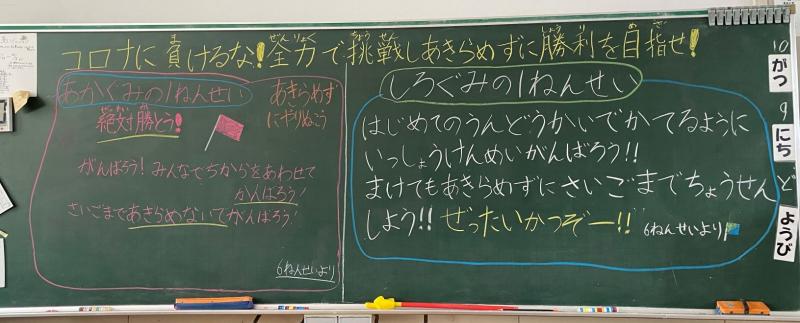 コロナに負けるな!全力で挑戦しあきらめずに勝利を目指せ!
あかぐみの1ねんせい
あきらめず
にやりぬこう
絶対勝とう!
がんばろう!みんなでちからをあわせて
がんばろう!
さいごまであきらめないでがんばろう!
6ねんせいより
しろぐみの1ねんせい
はじめてのうんどうかいでかてるように
いっしょうけんめいがんばろう!!
まけてもあきらめずにさいごまでちょうせん
しよう!!ぜったいかつぞー!!
6ねんせいより
10
がつ
9
にち
ど
ようび